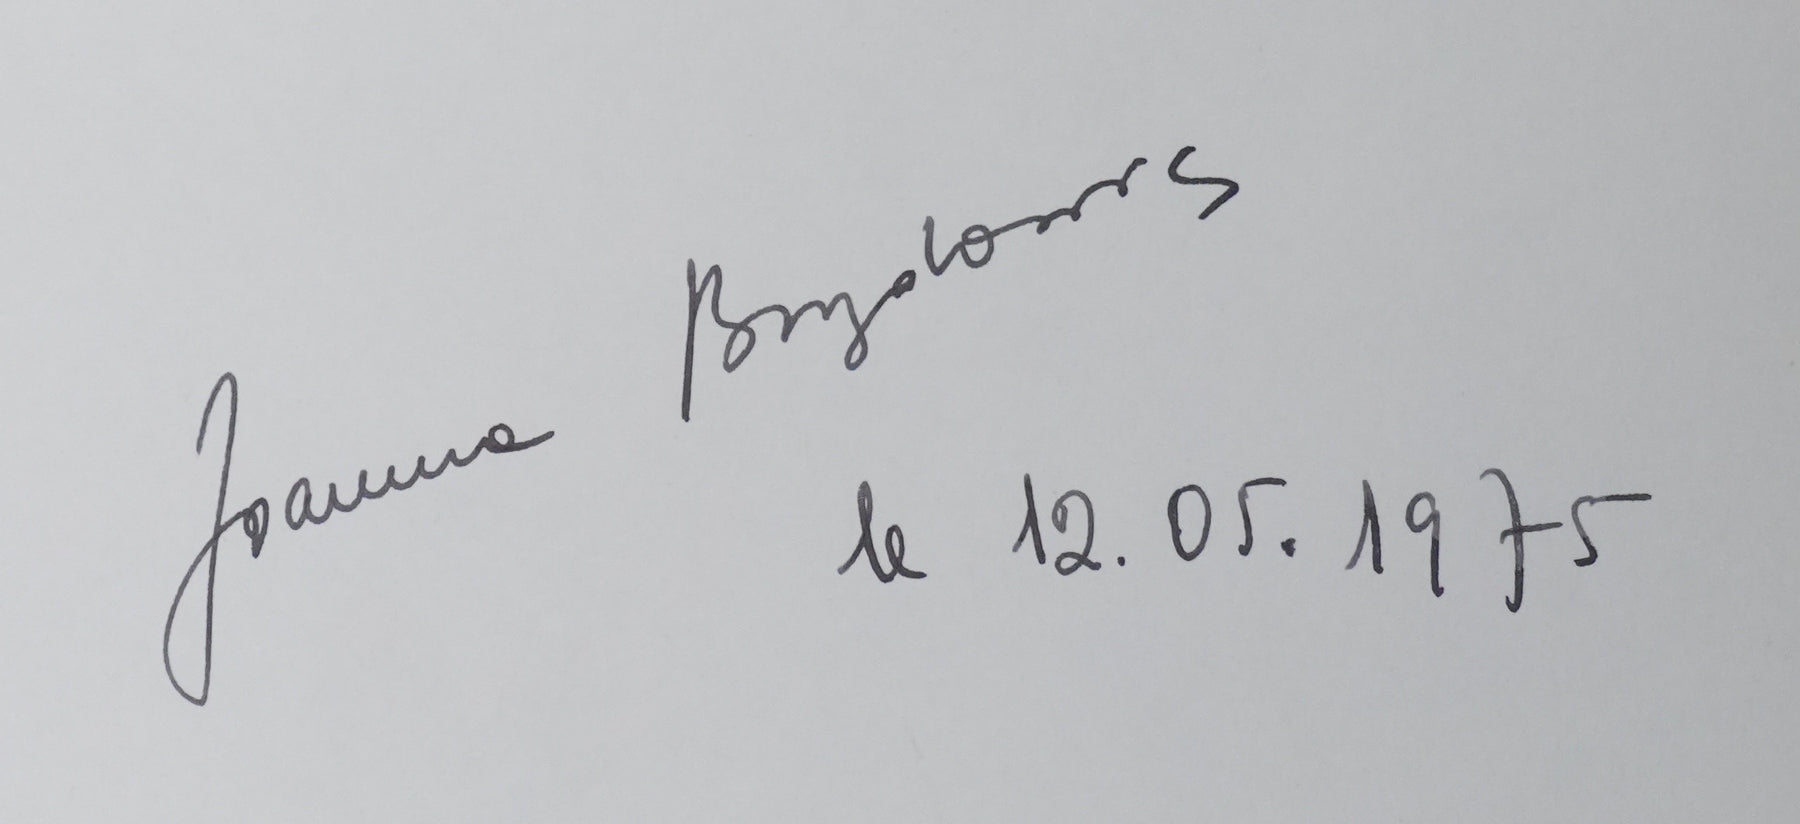 Joanna
le 12.05.1975